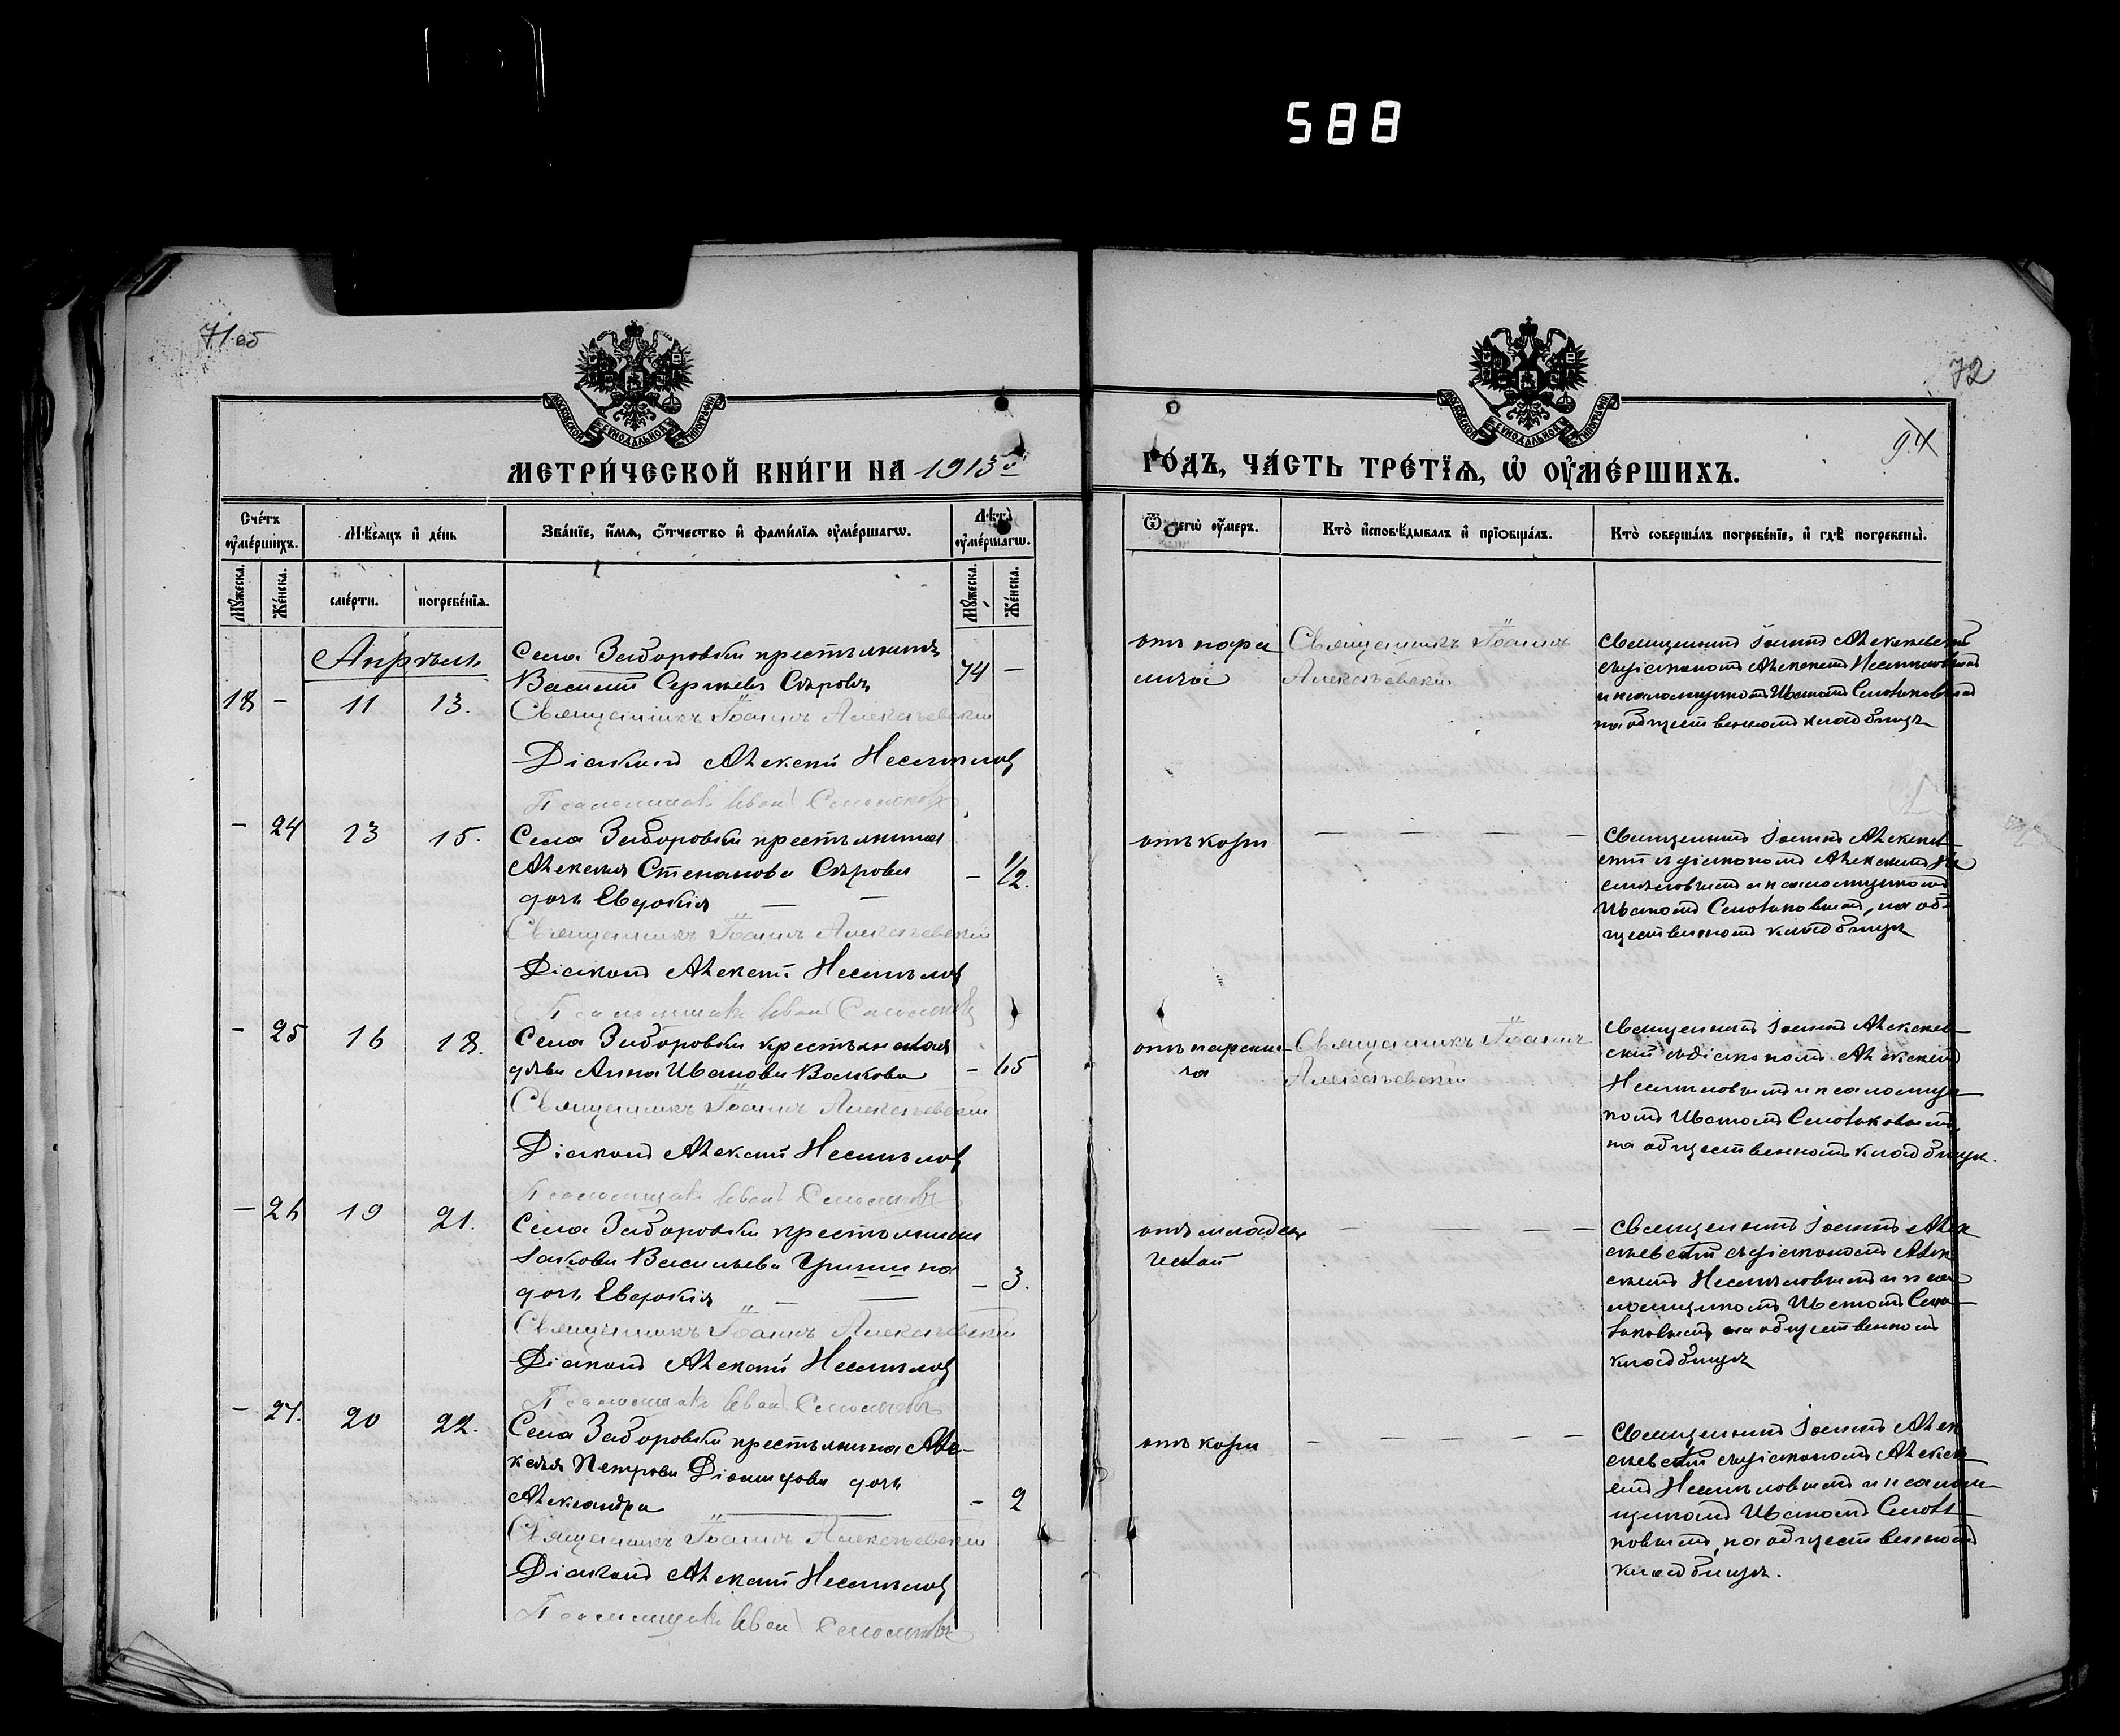 588
71 об
72
94
МОСКОВСКОЙ СѴНОДАЛЬНОЙ ТИПОГРАФІИ
МОСКОВСКОЙ СѴНОДАЛЬНОЙ ТИПОГРАФІИ
МЕТРИ́ЧЕСКОЙ КНИ́ГИ НА 1913й
ГО́ДЪ, ЧА́СТЬ ТРЕ́ТЇѦ, Ѡ҆ ОУ҆МЕ́РШИХЪ.
Сче́тъ оу҆ме́ршихъ.
Мѣ́сяцъ и҆ де́нь
Зва́нїе, и҆́мѧ, ѻ҆́тчество и҆ фами́лїѧ оу҆ме́ршагѡ.
Лѣ́та оу҆ме́ршагѡ.
Мꙋ́жеска.
Же́нска.
сме́рти.
погребе́нїѧ.
Мꙋ́жеска.
Же́нска.
Ѿ чегѡ̀ оу҆́меръ.
Кто̀ и҆сповѣ́дывалъ и҆ прїѻбща́лъ.
Кто̀ соверша́лъ погребе́нїе, и҆ гдѣ̀ погребены̀.
Апрѣль
18 - 11 13.
Села Заборовки крестьянинъ
Василій Сергѣевъ Сѣровъ
74 -
Священникъ Іоаннъ Алексѣевскій
Діаконъ Алексѣй Несмѣловъ
Псаломщикъ Иванъ
отъ пара
лича
Священникъ Іоаннъ
Алексѣевскій
Священникъ Іоаннъ Алексѣевскій
съ діакономъ Алексѣемъ Несмѣловымъ
и псаломщикомъ Иваномъ
на общественномъ кладбищѣ
- 24 13 15.
Села Заборовки крестьянина
Алексѣя Степанова Сѣрова
дочь Евдокія — —
- 1/2.
Священникъ Іоаннъ Алексѣевскій
Діаконъ Алексѣй Несмѣловъ
Псаломщикъ Иванъ
отъ кори
— — — —
Священникъ Іоаннъ Алексѣев
скій съ діакономъ Алексѣемъ Не
смѣловымъ и псаломщикомъ
Иваномъ на об-
щественномъ кладбищѣ
- 25 16 18.
Села Заборовки крестьянская
дѣва Анна Иванова Волкова
- 65
Священникъ Іоаннъ Алексѣевскій
Діаконъ Алексѣй Несмѣловъ
Псаломщикъ Иванъ
Священникъ Іоаннъ
Алексѣевскій
Священникъ Іоаннъ Алексѣев
скій съ діакономъ Алексѣемъ
Несмѣловымъ и псаломщи
комъ Иваномъ
на общественномъ кладбищѣ.
- 26 19 21.
Села Заборовки крестьянина
Іакова Васильева Гришина
дочь Евдокія — —
- 3.
Священникъ Іоаннъ Алексѣевскій
Діаконъ Алексѣй Несмѣловъ
Псаломщикъ Иванъ
отъ младен
ческой
— — — —
Священникъ Іоаннъ Алек
сѣевскій съ діакономъ Алек
сѣемъ Несмѣловымъ и пса
ломщикомъ Иваномъ
на общественномъ
кладбищѣ
- 27. 20 22.
Села Заборовки крестьянина Але-
ксѣя Петрова Діомидова дочь
Александра
- 2
Священникъ Іоаннъ Алексѣевскій
Діаконъ Алексѣй Несмѣловъ
Псаломщикъ Иванъ
отъ кори
— — — — —
Священникъ Іоаннъ Алек
сѣевскій съ діакономъ Алексѣ
емъ Несмѣловымъ и псалом-
щикомъ Иваномъ
на общественномъ
кладбищѣ.